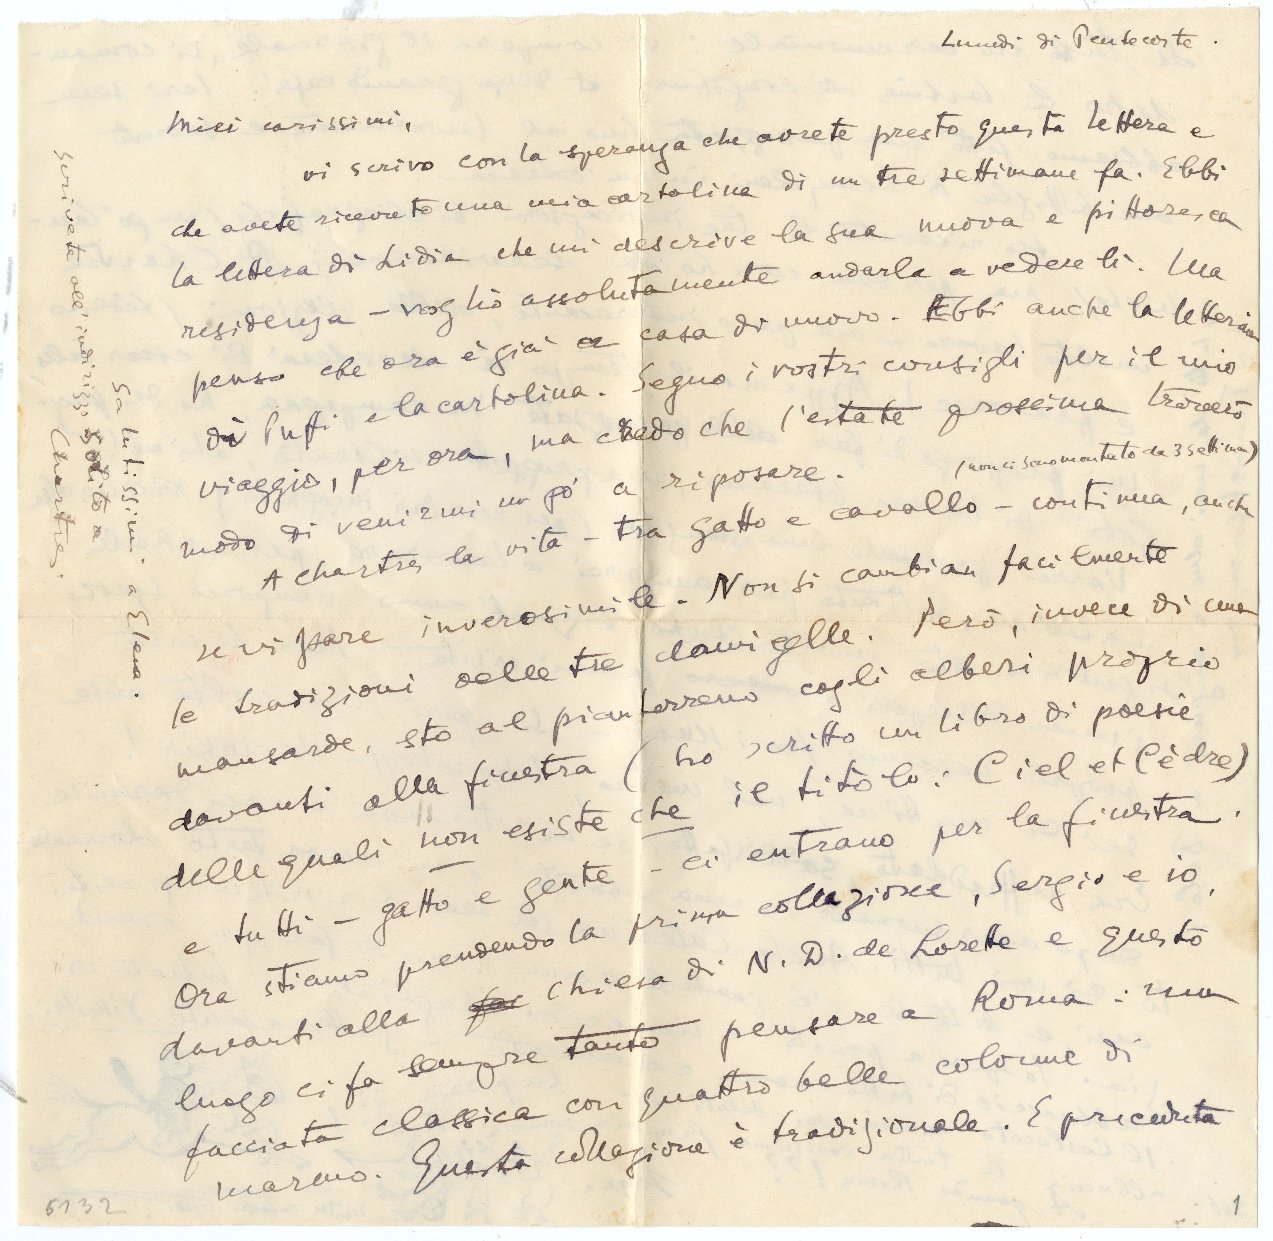 Lunedi di Pentecoste.
Miei carissimi,
vi scrivo con la speranza che avrete presto questa lettera e
che avete ricevuto una mia cartolina di un tre settimane fa. Ebbi
la lettera di Lidia che mi descrive la sua nuova e pittoresca
residenza – voglio assolutamente andarla a vedere lì. Ma
penso che ora è già a casa di nuovo. Ebbi anche la letterina
di Puffi e la cartolina. Seguo i vostri consigli per il mio
viaggio, per ora, ma credo che l'estate prossima troverò
modo di venirmi un pó a riposare.
(non ci sono montuto da 3 settim)
A Chartres la vita – tra gatto e cavallo – continua, anche
se vi pare inverosimile. Non si cambian facilmente
le tradizioni delle tre damigelle. Però, invece di una
mansarde, sto al pianterreno cogli alberi proprio
davanti alla finestra (ho scritto un libro di poesie
delle quali non esiste che il titolo: Ciel et Cèdre)
e tutti – gatto e gente – ci entrano per la finestra.
Ora stiamo prendendo la prima collazione, Sergio e io,
davanti alla chiesa di N. D. de Lorette e questo
luogo ci fa sempre tanto pensare a Roma: una
facciata classica con quattro belle colonne di
marmo. Questa collazione è tradizionale. E preceduta
Scrivete all'indirizzo solito a
Chartres.
Salutissimi a Elena.
5132
1